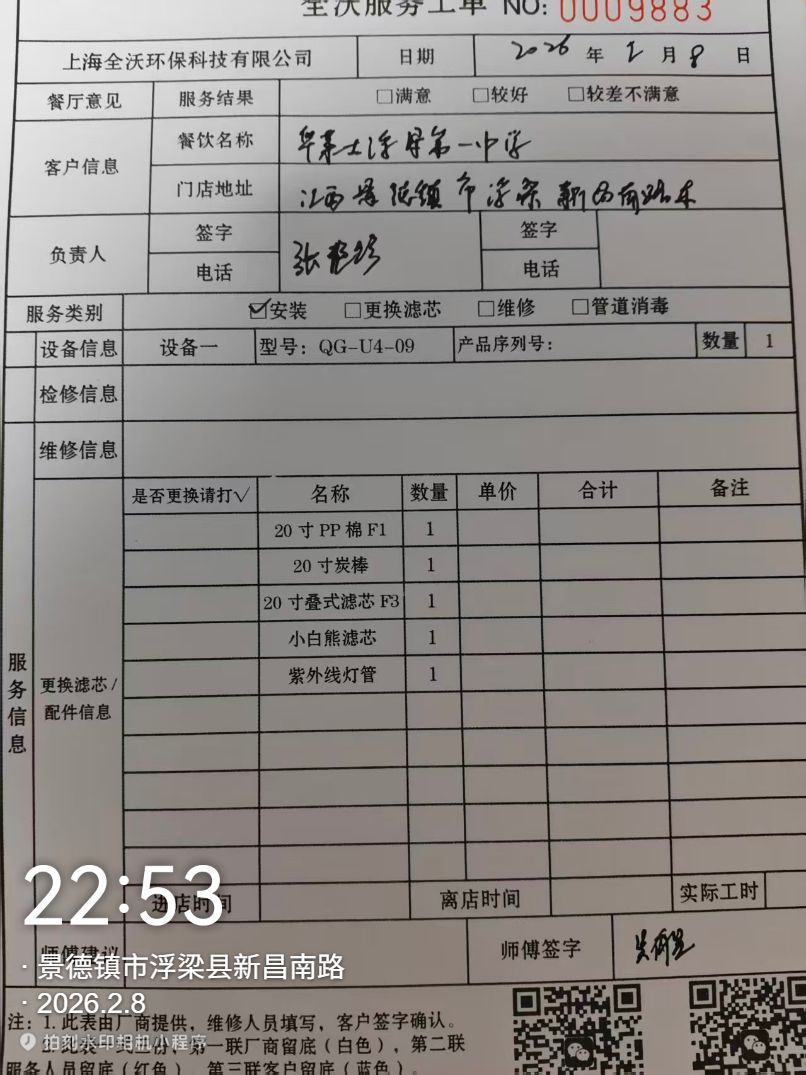 全沃服务工单 NO: 0009883
上海全沃环保科技有限公司 日期 2026 年 2 月 8 日
餐厅意见 服务结果 □满意 □较好 □较差不满意
客户信息 餐饮名称 华莱士浮梁第一中学
门店地址 江西景德镇市浮梁新昌南路
负责人 签字 张 签字
电话 电话
服务类别 ☑安装 □更换滤芯 □维修 □管道消毒
设备信息 设备一 型号：QG-U4-09 产品序列号： 数量 1
检修信息
维修信息
服务信息
更换滤芯/配件信息
是否更换请打√ 名称 数量 单价 合计 备注
20寸PP棉F1 1
20寸炭棒 1
20寸叠式滤芯F3 1
小白熊滤芯 1
紫外线灯管 1
进店时间 离店时间 实际工时
师傅建议 师傅签字
22:53
· 景德镇市浮梁县新昌南路
· 2026.2.8
注：1. 此表由厂商提供，维修人员填写，客户签字确认。
2. 此表一式三份，第一联厂商留底（白色），第二联
服务人员留底（红色），第三联客户留底（蓝色）。
拍刻水印相机小程序